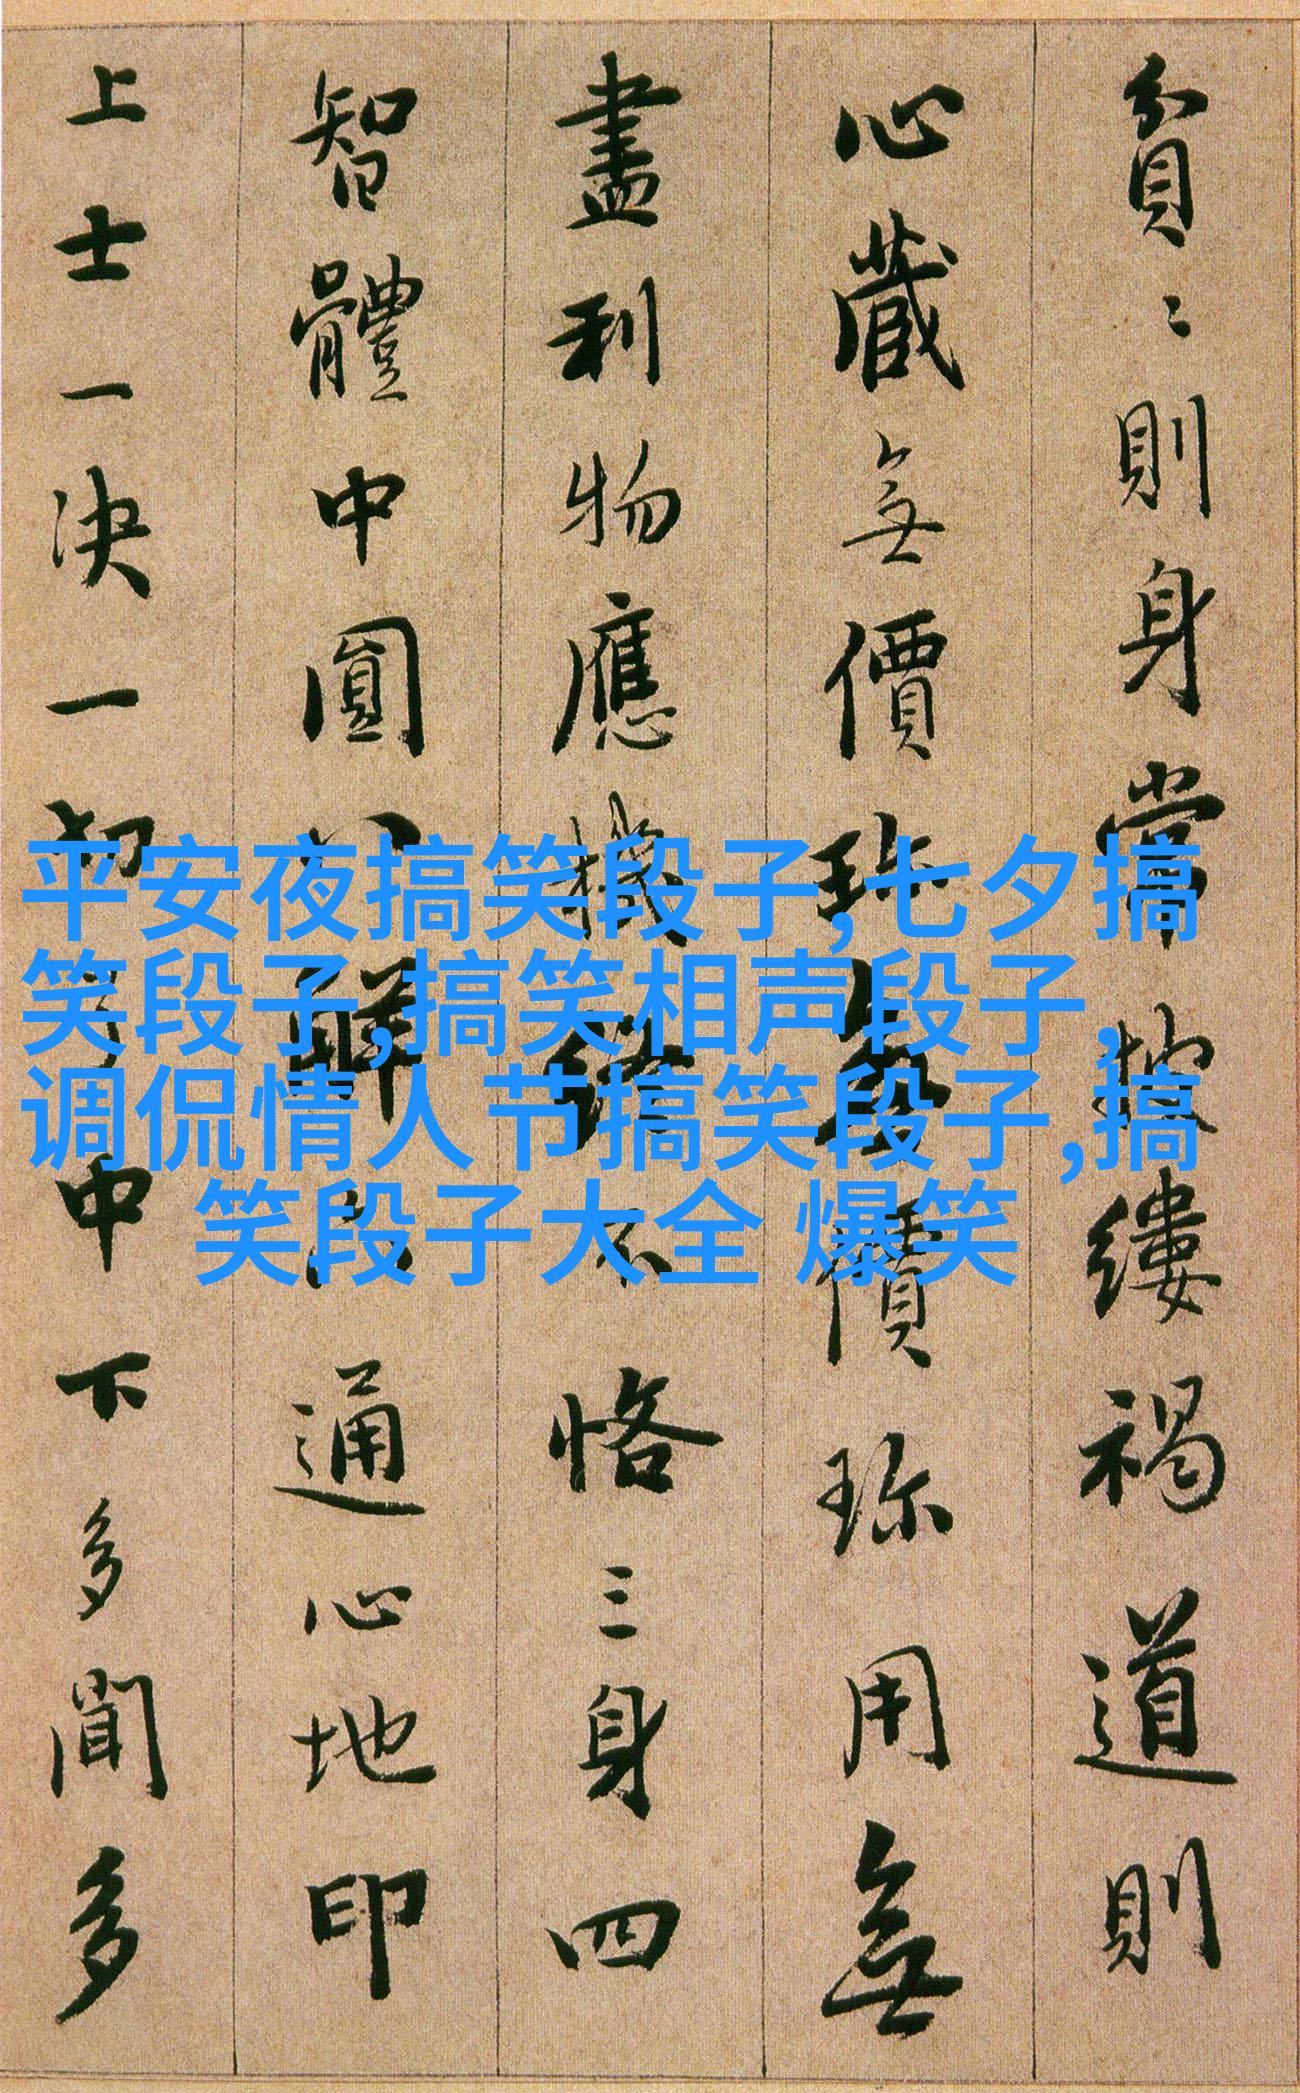 貧〻則身常披縷褐道則
心藏無價珎無價珎用無
盡利物應機終不恪三身四
智體中圓八解六通心地印
上士一决一切了中下多聞多
平安夜搞笑段子,七夕搞
笑段子,搞笑相声段子,
调侃情人节搞笑段子,搞
笑段子大全 爆笑